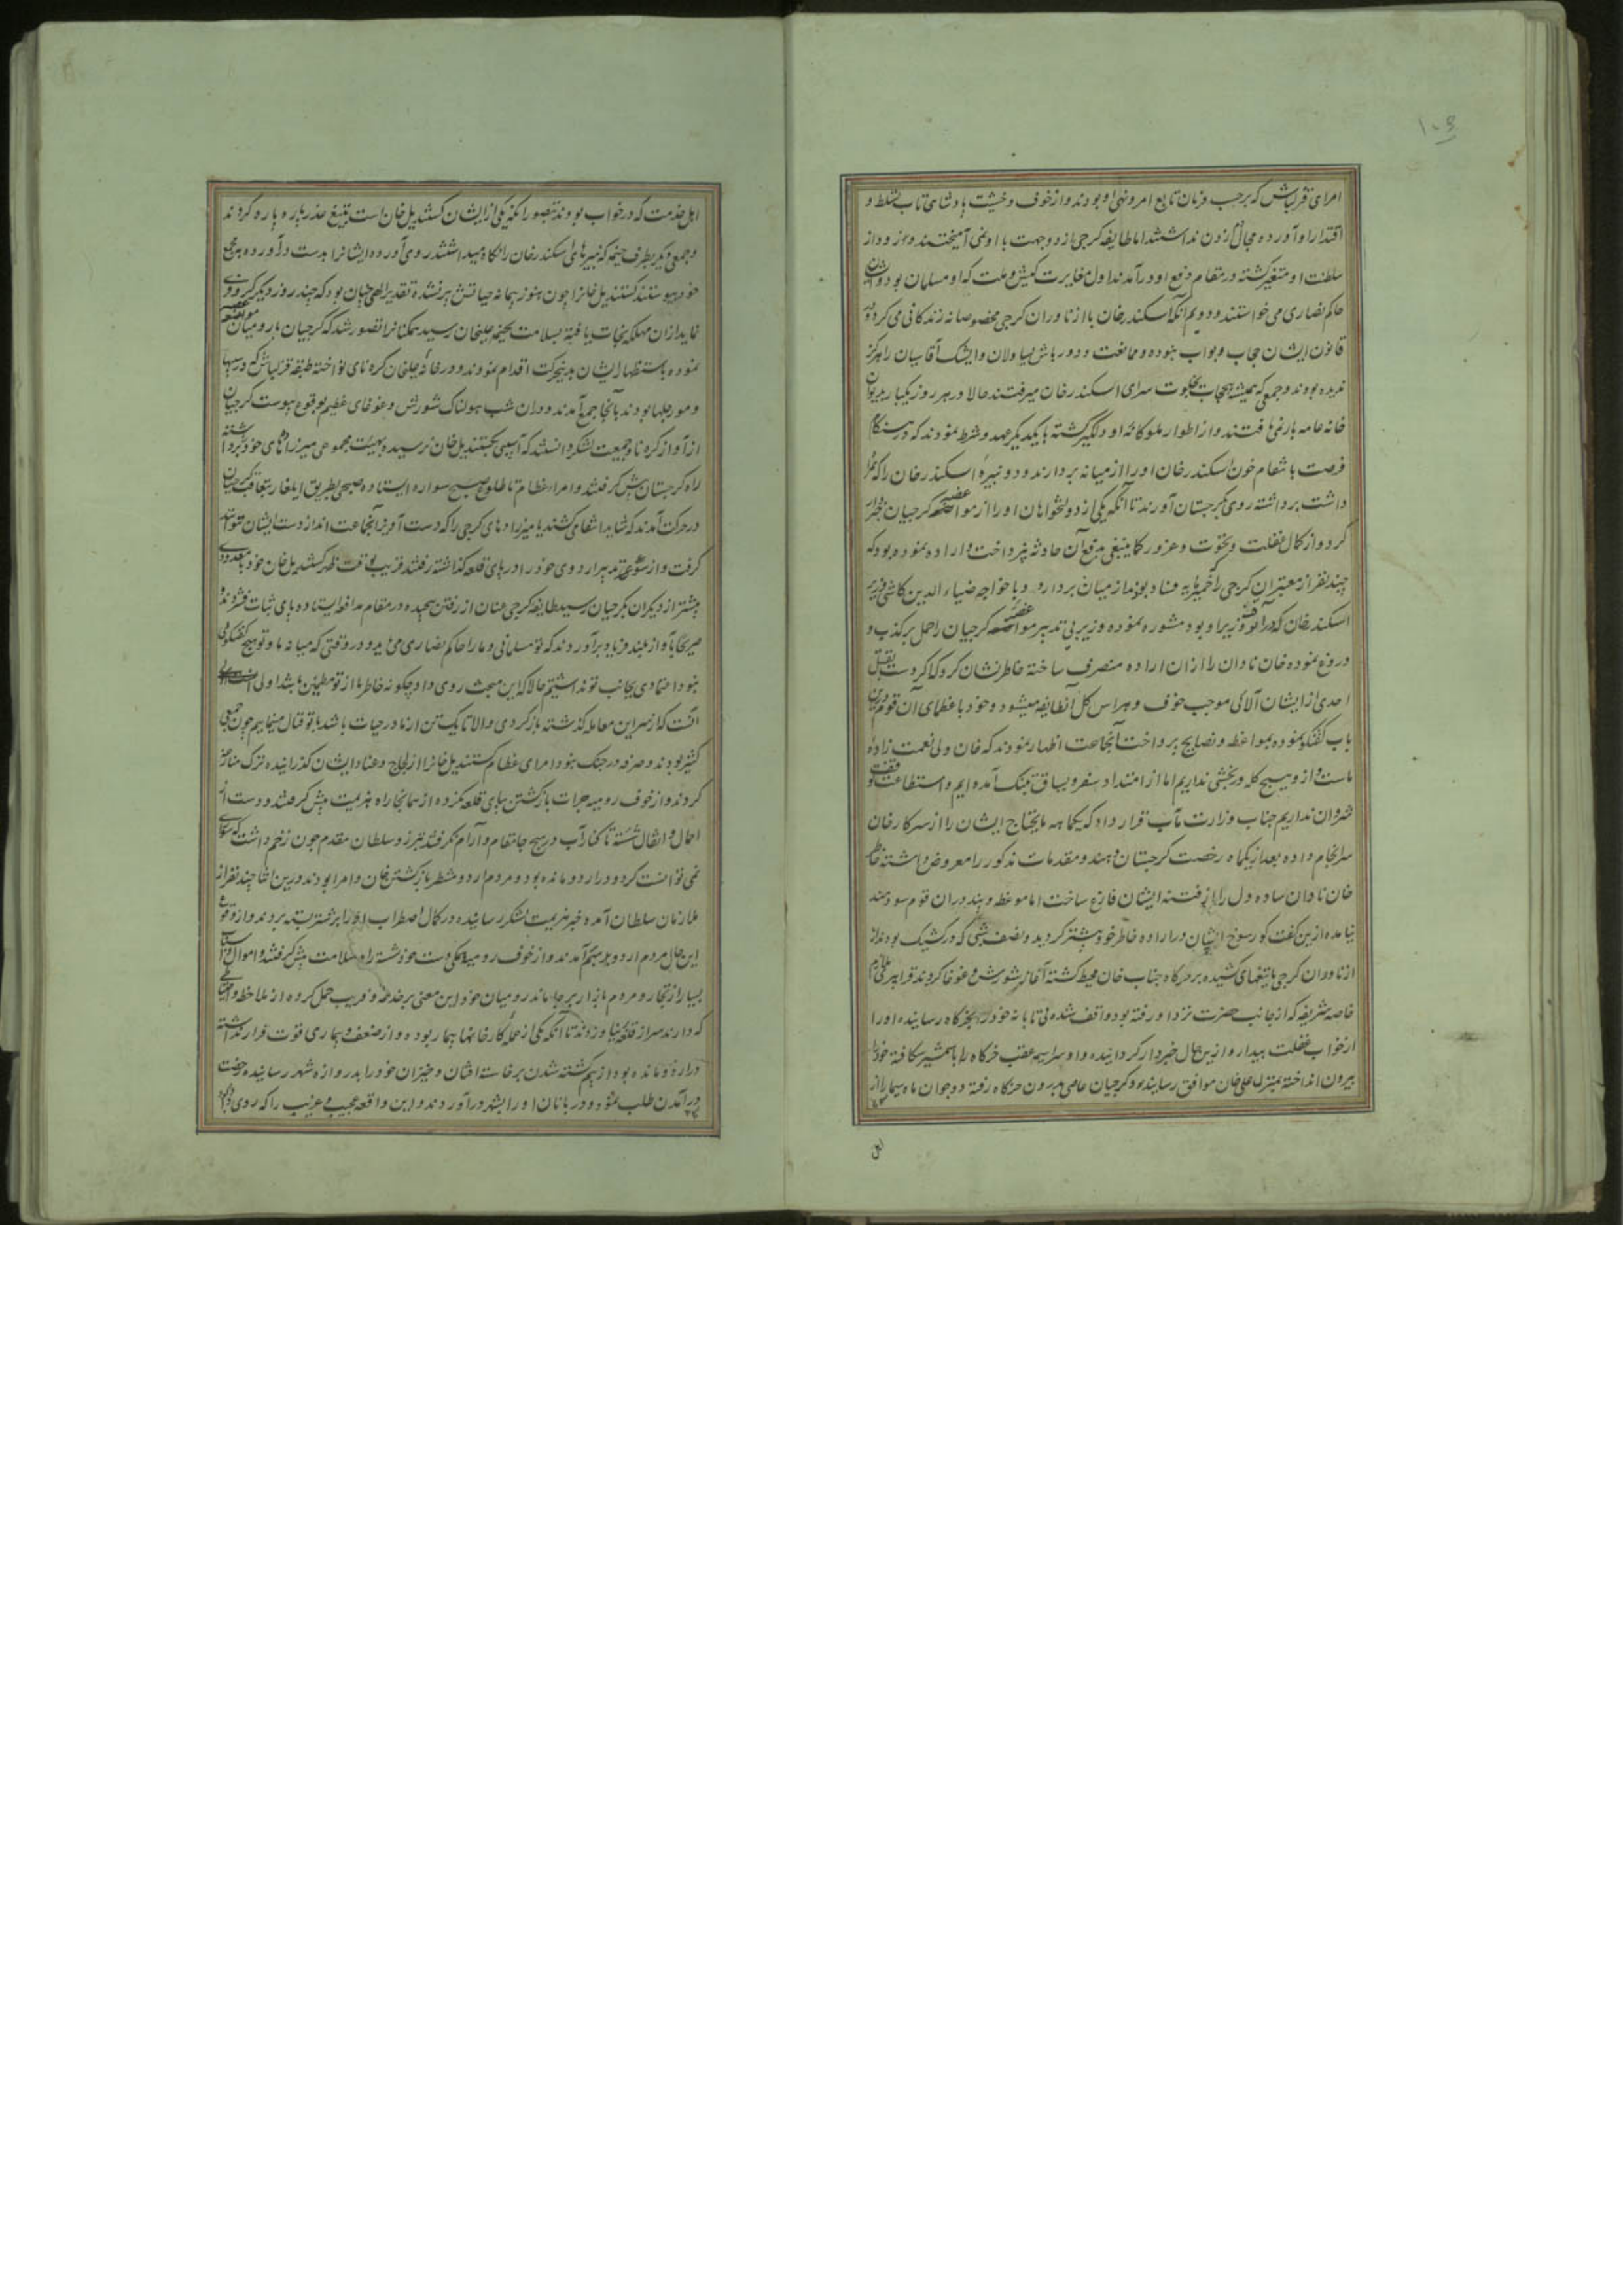 ۱۰۵
امرای قزلباش که برحسب فرمان تابع امر و نهی او بودند و از خوف و خشیت پادشاهی تاب تسلط و
اقتدار او آورده مجال دم زدن نداشتند اما طایفه کرجی از دو جهت با او نمی آمیختند و
سلطنت او متنفر کشته در مقام دفع او درآمدند اول مغایرت کیش و ملت که او مسلمان بود و ایشان
حاکم نصاری می خواستند و دویم آنکه اسکندرخان با ازناوران کرجی مخصوصانه زندکانی می کرد و در
قانون ایشان حجاب و بواب نبوده و ممانعت و دورباش یساولان و ایشک آقاسیان را هرکز
ندیده بودند و جمعی که همیشه بخلوت سرای اسکندرخان میرفتند حالا در هر روز یکبار بدیوان
خانه عامه بار نمی یافتند و از اطوار ملوکانه او دلکیر کشته با یکدیکر عهد و شرط نمودند که در هنکام
فرصت بانتقام خون اسکندرخان او را از میانه بردارند و دو نبیره اسکندرخان را که همراه
داشت برداشته روی بکرجستان آورند تا آنکه یکی از دولتخواهان او را از مواضعه کرجیان خبردار
کرد و از کمال غفلت و نخوت و غرور کماینبغی بدفع آن حادثه نپرداخت و اراده نموده بود که
چند نفر از معتبران کرجی را که خمیرمایه فساد بودند از میان بردارد و با خواجه ضیاء الدین کاشی وزیر
اسکندرخان که در آنوقت وزیر او بود مشوره نموده وزیر بی تدبیر مواضعه کرجیان را حمل بر کذب و
دروغ نموده خان نادان را از ان اراده منصرف ساخته خاطرنشان کرد که اکر دست بقتل
احدی از ایشان آلائی موجب خوف و هراس کل آنطایفه میشود و خود با عظمای آن قوم درین
باب کفتکو نموده بمواعظ و نصایح پرداخت آنجماعت اظهار نمودند که خان ولی نعمت زاده
ماست و از و هیچ کله و رنجشی نداریم اما از امتداد سفر و یساق بتنک آمده ایم و استطاعت توقف
شروان نداریم جناب وزارت مآب قرار داد که یکماهه مایحتاج ایشان را از سرکار خان
سرانجام داده بعد از یکماه رخصت کرجستان دهند و مقدمات مذکور را معروض داشته خاطر
خان نادان ساده دل را از فتنه ایشان فارغ ساخت اما موعظه و پند در ان قوم سودمند
نیامده ازین کفت کو رسوخ ایشان در اراده خاطر خود بیشتر کردید و نصف شبی که در کشیک بودند
ازناوران کرجی با تیغهای کشیده بر خرکاه جناب خان محیط کشته آغاز شورش و غوغا کردند
خاصه شریفه که از جانب حضرت نزد او رفته بود واقف شده بی تابانه خود را بخرکاه رسانیده او را
از خواب غفلت بیدار و ازین حال خبردار کردانیده و او سراسیمه عقب خرکاه را بشمشیر شکافته خود را
بیرون انداخته بمنزل علی خان موافق رسانید و کرجیان عاصی بدرون خرکاه رفته دو جوان ماه سیما را از
اهل خدمت که در خواب بودند بتصور آنکه یکی از ایشان کستندیل خان است بتیغ غدر پاره پاره کردند
و جمعی دیکر بطرف خیمه که نبیرهای اسکندرخان را نکاه میداشتند روی آورده ایشانرا بدست درآورده بجمع
خود پیوستند کستندیل خانرا چون هنوز پیمانه حیاتش پر نشده تقدیر الهی چنان بود که چند روز دیکر
نماید از ان مهلکه نجات یافته بسلامت بخیمه علیخان رسید همکنانرا تصور شد که کرجیان با رومیان مواضعه
نموده باستظهار ایشان بدینحرکت اقدام نمودند و در خانه علیخان کره نای نواخته طبقه قزلباش که در سیبها
و مورچلها بودند بآنجا جمع آمدند و در ان شب هولناک شورش و غوغای عظیم بوقوع پیوست کرجیان
از آواز کره نا و جمعیت لشکر دانستند که آسیبی بکستندیل خان نرسیده بهیئت مجموعی میرزاده های خود را برداشته
راه کرجستان پیش کرفتند و امراء عظام تا طلوع صبح سواره ایستاده صبحی بطریق ایلغار بتعاقب کرجیان
در حرکت آمدند که شاید انتقامی کشند یا میرزادهای کرجی را که دست آویز آنجماعت اند از دست ایشان توانند
کرفت و از سوء تدبیر اردوی خود را در پای قلعه کذاشته رفتند قریب بوقت ظهر کستندیل خان خود با معدودی
پیشتر از دیکران بکرجیان رسید طایفه کرجی عنان از رفتن پیچیده در مقام مدافعه ایستاده پای ثبات فشردند و
صریحا بآواز بلند فریاد برآوردند که تو مسلمانی و ما را حاکم نصاری می باید و در وقتی که میانه ما و تو هیچ کفتکوئی
نبود اعتمادی بجانب تو نداشتیم حالا که این مبحث روی داد چکونه خاطر ما از تو مطمئن باشد اولی
آنست که از سر این معامله کذشته بازکردی و الا تا یک تن از ما در حیات باشد با تو قتال مینماییم چون جمعی
کثیر بودند و صرفه در جنک نبود امرای عظام کستندیل خانرا از لجاج و عناد ایشان کذرانیده ترک منازعه
کردند و از خوف رومیه جرات بازکشتن بپای قلعه نکرده از همانجا راه هزیمت پیش کرفتند و دست از
احمال و اثقال شسته تا کنار آب در هیچ جا مقام و آرام نکرفتند فریبرز سلطان مقدم چون زخم داشت که سواری
نمی توانست کرد و در اردو مانده بود و مردم اردو منتظر بازکشتن خان و امرا بودند درین اثنا چند نفر از
ملازمان سلطان آمده خبر هزیمت لشکر رسانیده در کمال اضطراب او را بر شتر بسته بردند و از وقوع
این حال مردم اردو بر هم آمدند و از خوف رومیه یکدست خود شسته راه سلامت پیش کرفتند و اموال و اسباب
بسیار از تجار و مردم بازار بر جا ماند رومیان خود این معنی بر خدعه و فریب حمل کرده از ملاحظه و احتیاطی
که دارند سر از قلعه نیاوردند تا آنکه یکی از عمله کارخانها بیمار بوده و از ضعف و بیماری قوت فرار نداشته
در اردو مانده بود از بیم کشته شدن برخاسته افتان و خیزان خود را بدروازه شهر رسانیده رخصت
درآمدن طلب نمود و دربانان او را بشهر درآوردند و این واقعه عجیب و غریب را که روی داد